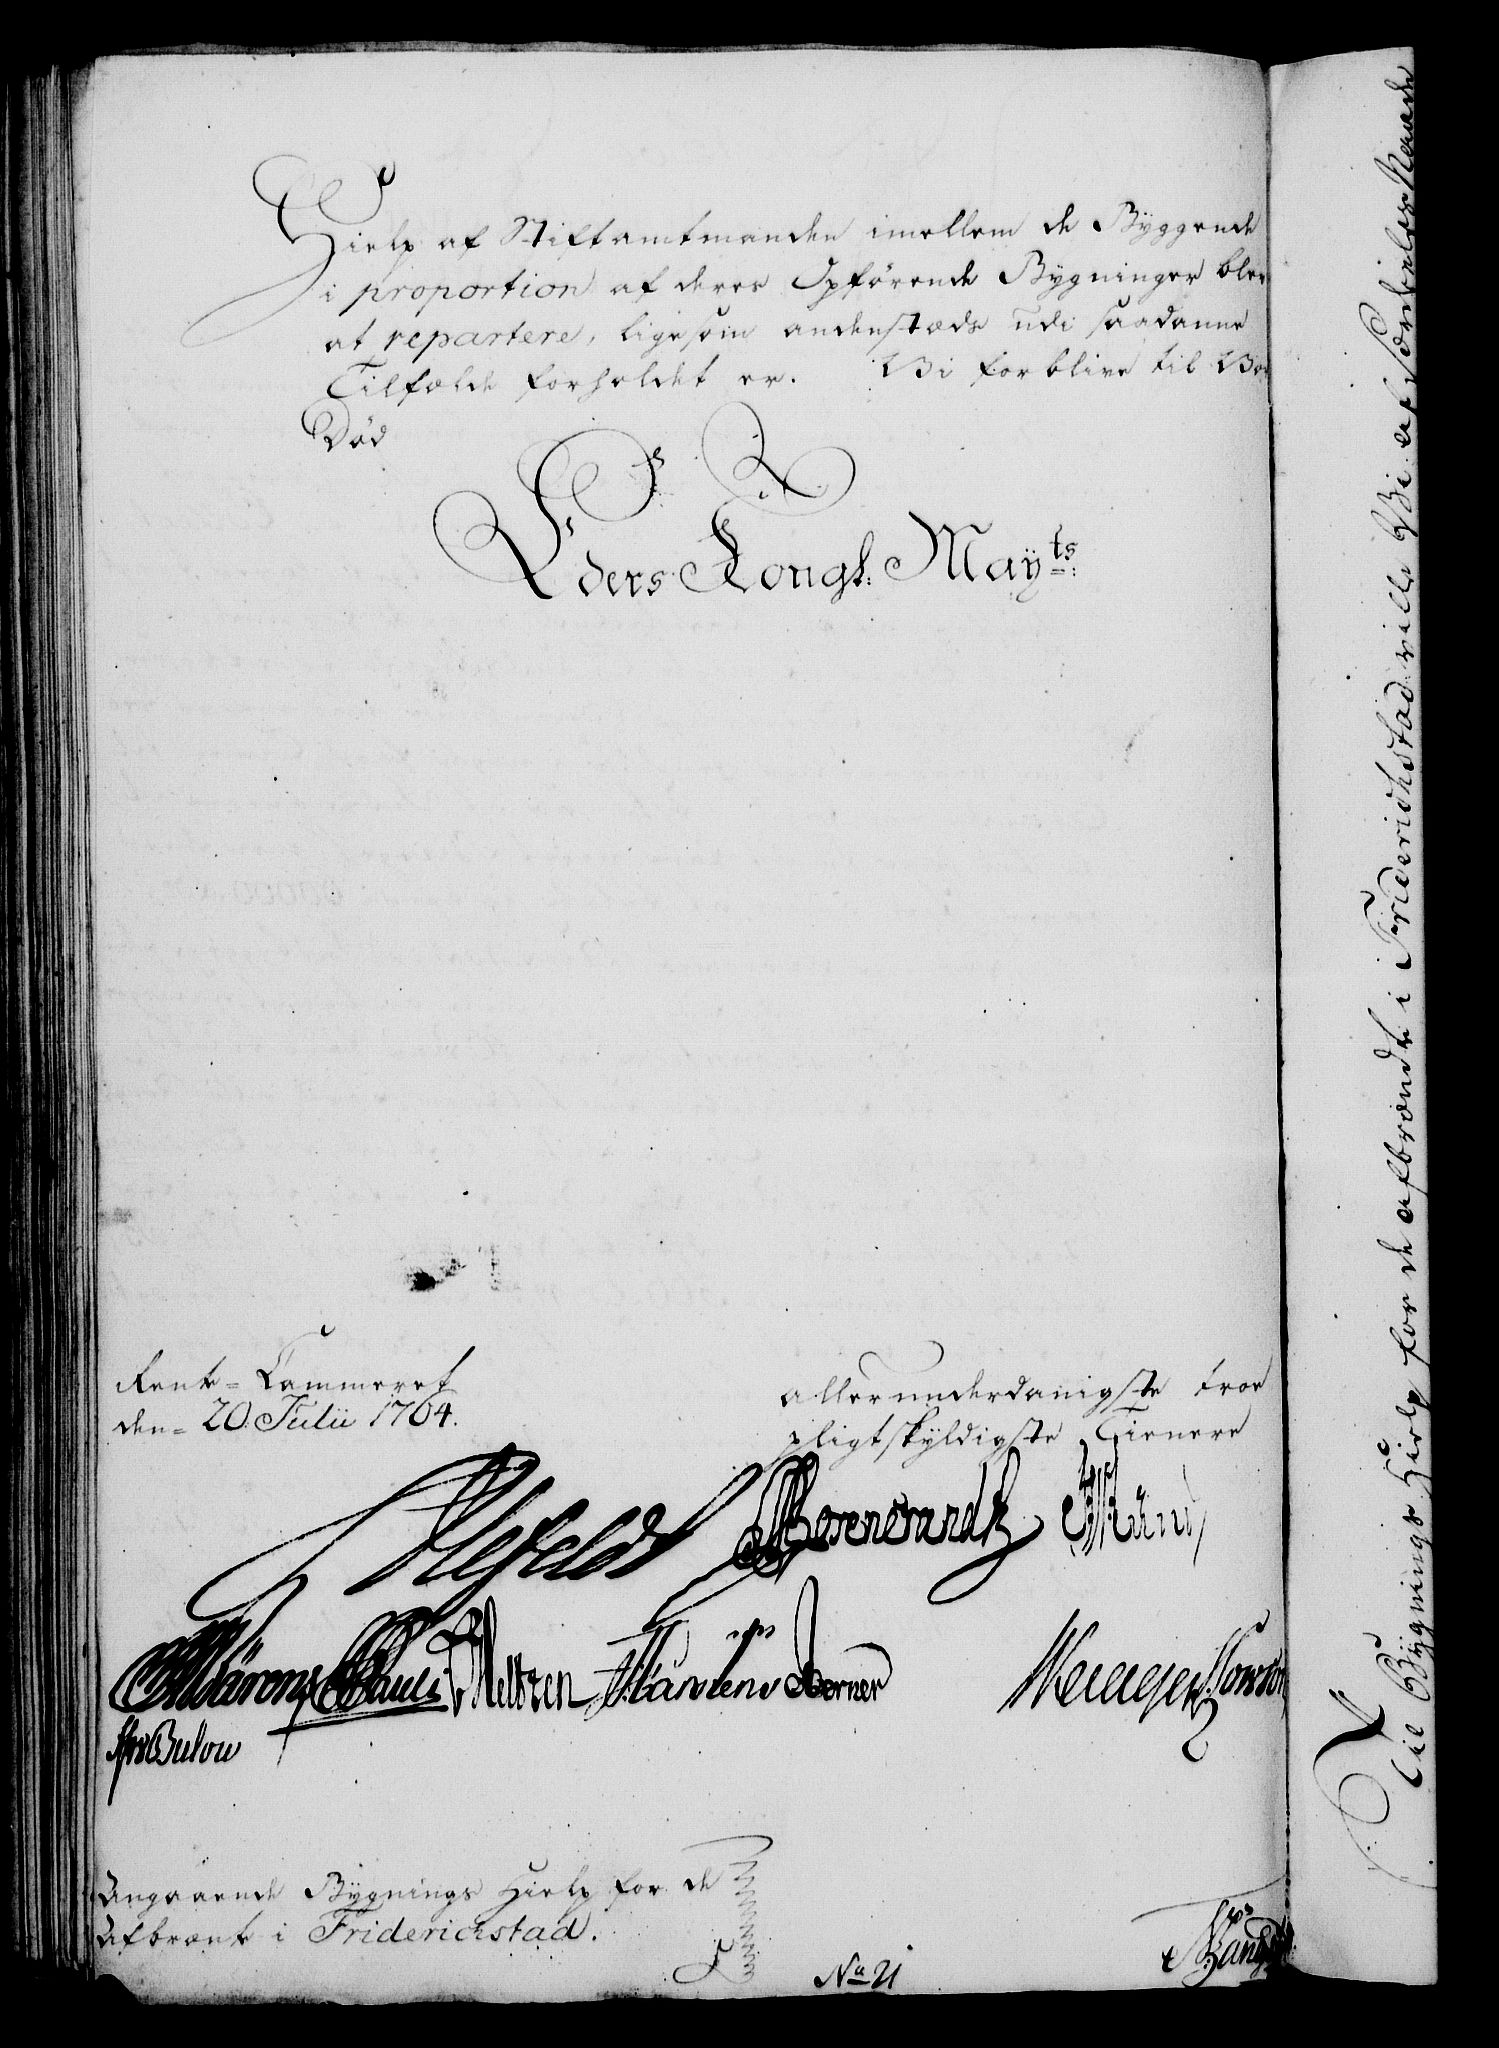 Hielp af Stiftamtmanden imellem de Byggende
i proportion af deres Opførende Bygninger blev
at repartere, ligesom andenstæds udi saadanne
Tilfælde forholdet er. Vi forblive til Vor
Død
Eders Kongl: Mayts:
Rente-Cammeret
den 20 Julii 1764.
allerunderdanigste troe
pligtskyldigste Tienere
Ahlefeldt
Berner
Bulow
Angaaende Bygnings Hielp for de
Afbrænte i Friderichstad.
No 21
Til Bygnings Hielp for de afbrændte i Friderichstad ville Vi af